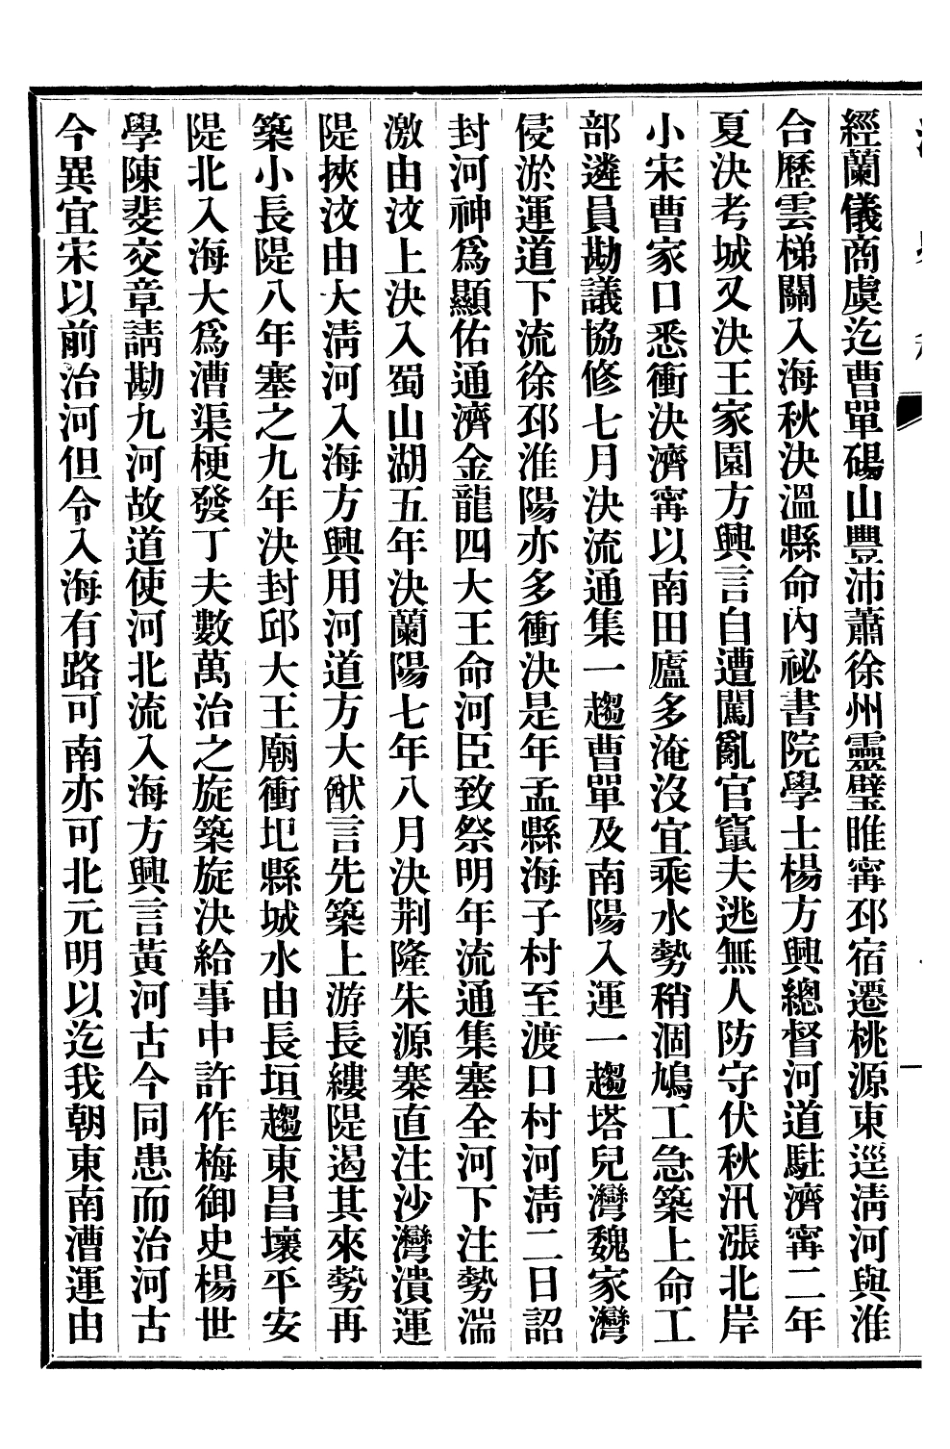 經蘭儀商虞迄曹單碭山豐沛蕭徐州靈璧睢甯邳宿遷桃源東逕淸河與淮
合歷雲梯關入海秋決溫縣命內祕書院學士楊方興總督河道駐濟甯二年
夏決考城又決王家園方興言自遭闖亂官竄夫逃無人防守伏秋汛漲北岸
小宋曹家口悉衝決濟甯以南田廬多淹沒宜乘水勢稍涸鳩工急築上命工
部遴員勘議協修七月決流通集一趨曹單及南陽入運一趨塔兒灣魏家灣
侵淤運道下流徐邳淮陽亦多衝決是年孟縣海子村至渡口村河淸二日詔
封河神爲顯佑通濟金龍四大王命河臣致祭明年流通集塞全河下注勢湍
激由汶上決入蜀山湖五年決蘭陽七年八月決荆隆朱源寨直注沙灣潰運
隄挾汶由大淸河入海方興用河道方大猷言先築上游長縷隄遏其來勢再
築小長隄八年塞之九年決封邱大王廟衝圯縣城水由長垣趨東昌壞平安
隄北入海大爲漕渠梗發丁夫數萬治之旋築旋決給事中許作梅御史楊世
學陳斐交章請勘九河故道使河北流入海方興言黃河古今同患而治河古
今異宜宋以前治河但令入海有路可南亦可北元明以迄我朝東南漕運由